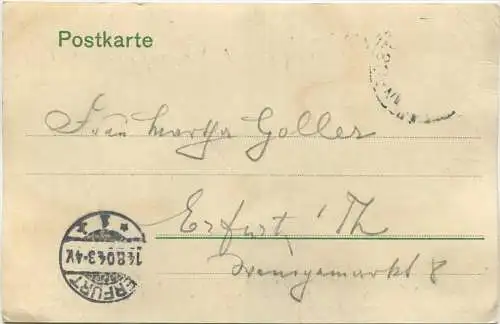 Postkarte
Frau Martha Goller
Erfurt i/Th
Wenigemarkt 8
14.8.04.3-4N.
ERFURT